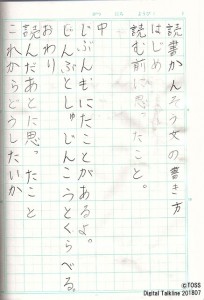 読書かんそう文の書き方
はじめ
読む前に思ったこと。
中
じぶんもにたことがあるよ。
じんぶとしゅじんこうとくらべる。
おわり
読んだあとに思ったこと
これからどうしたいか
©TOSS
Digital Talkline 201807